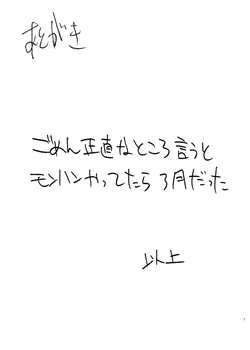 あとがき
ごめん正直なところ言うと
モンハンやってたら3月だった
以上